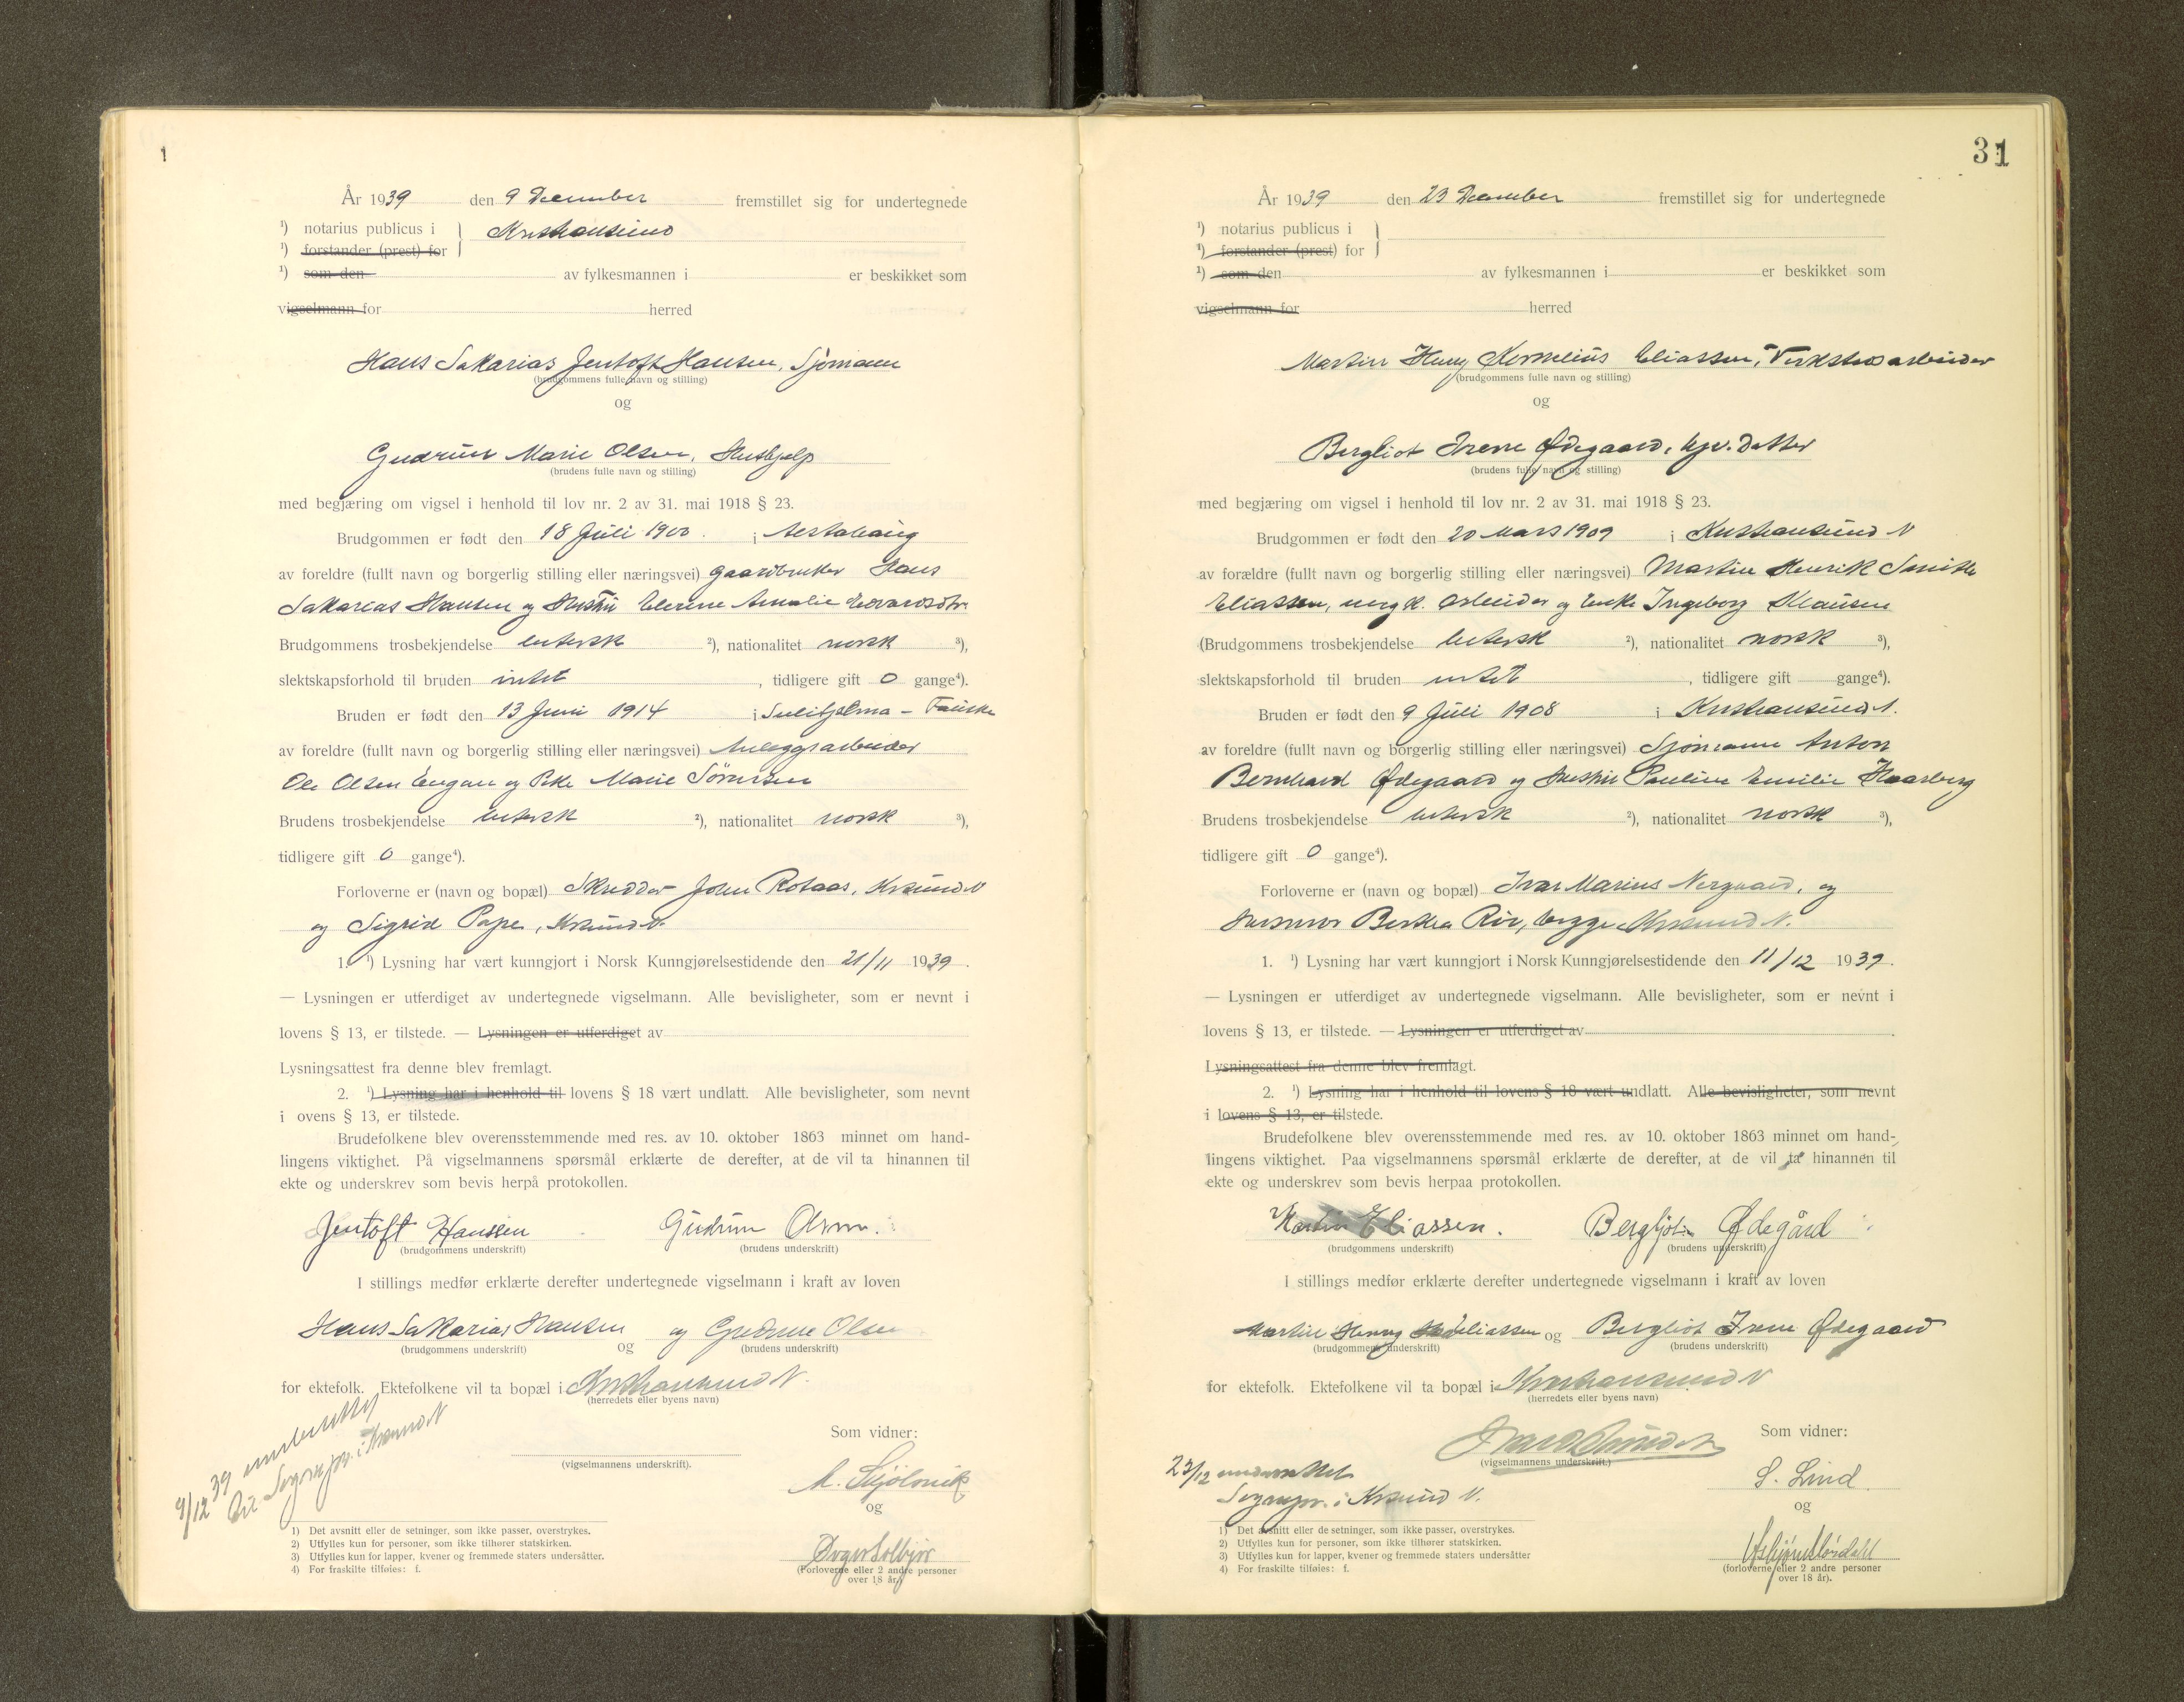 1
År 1939 den 9 December fremstillet sig for undertegnede
¹) notarius publicus i Kristiansund
¹) forstander (prest) for
¹) som den av fylkesmannen i er beskikket som
vigselmann for herred
Hans Sakarias Jentoft Hansen, Sjømann
(brudgommens fulle navn og stilling)
og
Gudrun Marie Olsen, Hushjelp
(brudens fulle navn og stilling)
med begjæring om vigsel i henhold til lov nr. 2 av 31. mai 1918 § 23.
Brudgommen er født den 18 Juli 1900. i
av foreldre (fullt navn og borgerlig stilling eller næringsvei) Gaardbruker Hans
Sakarias Hansen og Hustru Elerine Amalie Edvardsdtr.
Brudgommens trosbekjendelse lutersk ²), nationalitet norsk ³),
slektskapsforhold til bruden intet, tidligere gift 0 gange⁴).
Bruden er født den 13 Juni 1914 i Sulitjelma - Fauske
av foreldre (fullt navn og borgerlig stilling eller næringsvei) Anleggsarbeider
Ole Olsen Engan og Pike Marie Sørensen
Brudens trosbekjendelse lutersk ²), nationalitet norsk ³),
tidligere gift 0 gange⁴).
Forloverne er (navn og bopæl) Skredder John Rotaas, Krsund N
og Sigrid Pape, Krsund N.
1. ¹) Lysning har vært kunngjort i Norsk Kunngjørelsestidende den 21/11 1939.
— Lysningen er utferdiget av undertegnede vigselmann. Alle bevisligheter, som er nevnt i
lovens § 13, er tilstede. — Lysningen er utferdiget av
Lysningsattest fra denne blev fremlagt.
2. ¹) Lysning har i henhold til lovens § 18 vært undlatt. Alle bevisligheter, som nevnt
i ovens § 13, er tilstede.
Brudefolkene blev overensstemmende med res. av 10. oktober 1863 minnet om hand-
lingens viktighet. På vigselmannens spørsmål erklærte de derefter, at de vil ta hinannen til
ekte og underskrev som bevis herpå protokollen.
Jentoft Hanssen Gudrun Olsen.
(brudgommens underskrift) (brudens underskrift)
I stillings medfør erklærte derefter undertegnede vigselmann i kraft av loven
Hans Sakarias Hansen og Gudrun Olsen
(brudgommens underskrift) og (brudens underskrift)
for ektefolk. Ektefolkene vil ta bopæl i Kristiansund N.
(herredets eller byens navn)
9/12 39 underrettet
Sogneprs. i Krsund N
Som vidner:
(vigselmannens underskrift).
og
(Forloverne eller 2 andre personer
over 18 år.)
1) Det avsnitt eller de setninger, som ikke passer, overstrykes.
2) Utfylles kun for personer, som ikke tilhører statskirken.
3) Utfylles kun for lapper, kvener og fremmede staters undersåtter.
4) For fraskilte tilføies: f.
31
År 1939 den 23 December fremstillet sig for undertegnede
¹) notarius publicus i
¹) forstander (prest) for
¹) som den av fylkesmannen i er beskikket som
vigselmann for herred
Martin Henry Kornelius Eliassen, Verkstedsarbeider
(brudgommens fulle navn og stilling)
og
Bergliot Irene Ødegaard, hjv. Datter
(brudens fulle navn og stilling)
med begjæring om vigsel i henhold til lov nr. 2 av 31. mai 1918 § 23.
Brudgommen er født den 20 Mars 1909 i Kristiansund N
av forældre (fullt navn og borgerlig stilling eller næringsvei) Martin Henrik Smith
Eliassen, arbeider og Enke Ingeborg Klausen
(Brudgommens trosbekjendelse lutersk ²), nationalitet norsk ³),
slektskapsforhold til bruden intet, tidligere gift gange⁴).
Bruden er født den 9 Juli 1908 i Kristiansund N.
av foreldre (fullt navn og borgerlig stilling eller næringsvei) Sjømann Anton
Bernhard Ødegaard og Hustru Pauline Emilie Haarberg
Brudens trosbekjendelse lutersk ²), nationalitet norsk ³),
tidligere gift 0 gange⁴).
Forloverne er (navn og bopæl) Ivar Marius Nergaard, og
Husmor Berthea Rør, begge Krsund N.
1. ¹) Lysning har vært kunngjort i Norsk Kunngjørelsestidende den 11/12 1939.
— Lysningen er utferdiget av undertegnede vigselmann. Alle bevisligheter, som er nevnt i
lovens § 13, er tilstede. — Lysningen er utferdiget av
Lysningsattest fra denne blev fremlagt.
2. ¹) Lysning har i henhold til lovens § 18 vært undlatt. Alle bevisligheter, som nevnt
i lovens § 13, er tilstede.
Brudefolkene blev overensstemmende med res. av 10. oktober 1863 minnet om hand-
lingens viktighet. Paa vigselmannens spørsmål erklærte de derefter, at de vil ta hinannen til
ekte og underskrev som bevis herpaa protokollen.
Martin Eliassen. Bergljot Ødegård
(brudgommens underskrift) (brudens underskrift)
I stillings medfør erklærte derefter undertegnede vigselmann i kraft av loven
Martin Henry Eliassen og Bergliot Irene Ødegaard
(brudgommens underskrift) (brudens underskrift)
for ektefolk. Ektefolkene vil ta bopæl i Kristiansund N
(herredets eller byens navn)
Som vidner:
(vigselmannens underskrift.)
23/12 underrettet
Sogneprs. i Krsund N.
S. Lind
og
(forloverne eller 2 andre personer
over 18 år).
1) Det avsnitt eller de setninger, som ikke passer, overstrykes.
2) Utfylles kun for personer, som ikke tilhører statskirken.
3) Utfylles kun for lapper, kvener og fremmede staters undersåtter
4) For fraskilte tilføies: f.